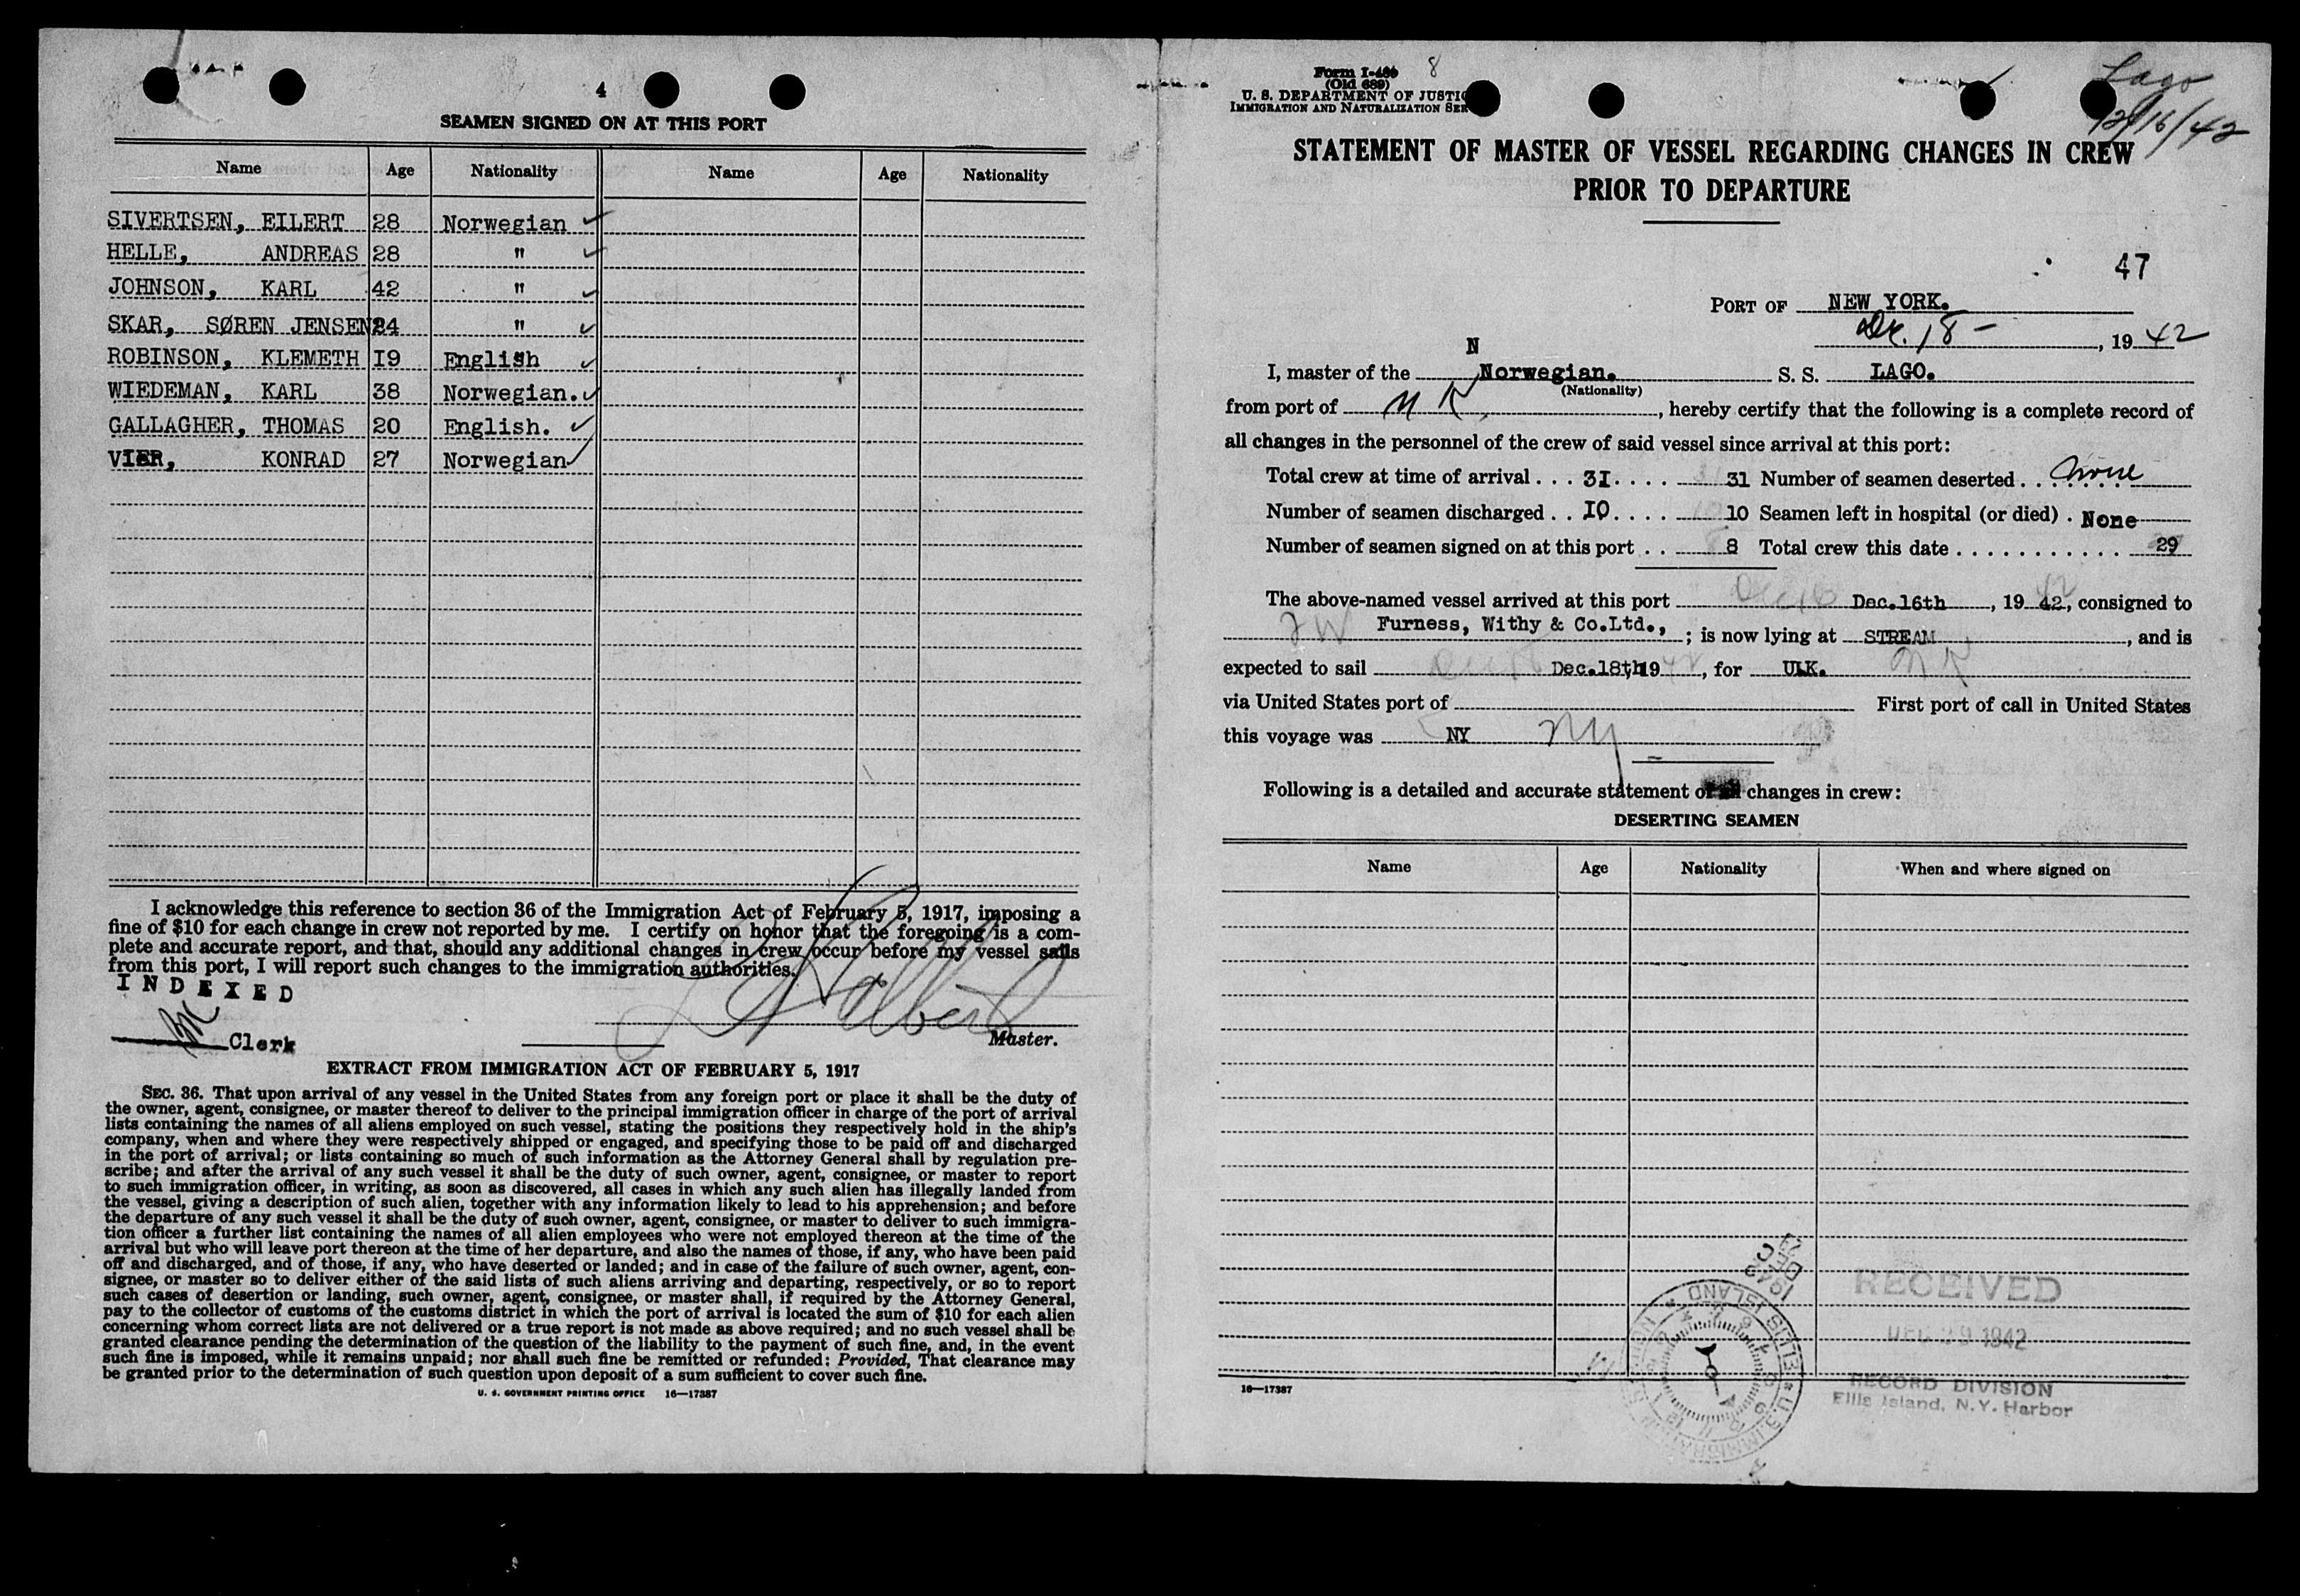 4
SEAMEN SIGNED ON AT THIS PORT
Name Age Nationality Name Age Nationality
SIVERTSEN, EILERT 28 Norwegian ✓
HELLE, ANDREAS 28 " ✓
JOHNSON, KARL 42 " ✓
SKAR, SØREN JENSEN 24 " ✓
ROBINSON, KLEMETH 19 English ✓
WIEDEMAN, KARL 38 Norwegian. ✓
GALLAGHER, THOMAS 20 English. ✓
VIER, KONRAD 27 Norwegian ✓
I acknowledge this reference to section 36 of the Immigration Act of February 5, 1917, imposing a
fine of $10 for each change in crew not reported by me. I certify on honor that the foregoing is a com-
plete and accurate report, and that, should any additional changes in crew occur before my vessel sails
from this port, I will report such changes to the immigration authorities.
INDEXED
Clerk
Master.
EXTRACT FROM IMMIGRATION ACT OF FEBRUARY 5, 1917
SEC. 36. That upon arrival of any vessel in the United States from any foreign port or place it shall be the duty of
the owner, agent, consignee, or master thereof to deliver to the principal immigration officer in charge of the port of arrival
lists containing the names of all aliens employed on such vessel, stating the positions they respectively hold in the ship's
company, when and where they were respectively shipped or engaged, and specifying those to be paid off and discharged
in the port of arrival; or lists containing so much of such information as the Attorney General shall by regulation pre-
scribe; and after the arrival of any such vessel it shall be the duty of such owner, agent, consignee, or master to report
to such immigration officer, in writing, as soon as discovered, all cases in which any such alien has illegally landed from
the vessel, giving a description of such alien, together with any information likely to lead to his apprehension; and before
the departure of any such vessel it shall be the duty of such owner, agent, consignee, or master to deliver to such immigra-
tion officer a further list containing the names of all alien employees who were not employed thereon at the time of the
arrival but who will leave port thereon at the time of her departure, and also the names of those, if any, who have been paid
off and discharged, and of those, if any, who have deserted or landed; and in case of the failure of such owner, agent, con-
signee, or master so to deliver either of the said lists of such aliens arriving and departing, respectively, or so to report
such cases of desertion or landing, such owner, agent, consignee, or master shall, if required by the Attorney General,
pay to the collector of customs of the customs district in which the port of arrival is located the sum of $10 for each alien
concerning whom correct lists are not delivered or a true report is not made as above required; and no such vessel shall be
granted clearance pending the determination of the question of the liability to the payment of such fine, and, in the event
such fine is imposed, while it remains unpaid; nor shall such fine be remitted or refunded: Provided, That clearance may
be granted prior to the determination of such question upon deposit of a sum sufficient to cover such fine.
U. S. GOVERNMENT PRINTING OFFICE 16—17387
8
(Old 689)
U. S. DEPARTMENT OF JUSTIC
IMMIGRATION AND NATURALIZATION SER
Lago
12/16/42
STATEMENT OF MASTER OF VESSEL REGARDING CHANGES IN CREW
PRIOR TO DEPARTURE
47
PORT OF NEW YORK.
Dec. 18 - , 19 42
N
I, master of the Norwegian. S. S. LAGO.
(Nationality)
from port of UK, hereby certify that the following is a complete record of
all changes in the personnel of the crew of said vessel since arrival at this port:
Total crew at time of arrival . . . 31 . . . . 31 Number of seamen deserted . . None
Number of seamen discharged . . 10 . . . . 10 Seamen left in hospital (or died) . None
Number of seamen signed on at this port . . 8 Total crew this date . . . . . . . . . . . . 29
The above-named vessel arrived at this port Dec.16th , 19 42, consigned to
Furness, Withy & Co.Ltd., ; is now lying at STREAM , and is
expected to sail Dec.18th 19 42, for U.K.
via United States port of First port of call in United States
this voyage was NY NY
Following is a detailed and accurate statement of all changes in crew:
DESERTING SEAMEN
Name Age Nationality When and where signed on
1942
DEC
RECEIVED
DEC 29 1942
RECORD DIVISION
Ellis Island, N.Y. Harbor
ELLIS ISLAND
U.S. IMMIGRATION
16—17387